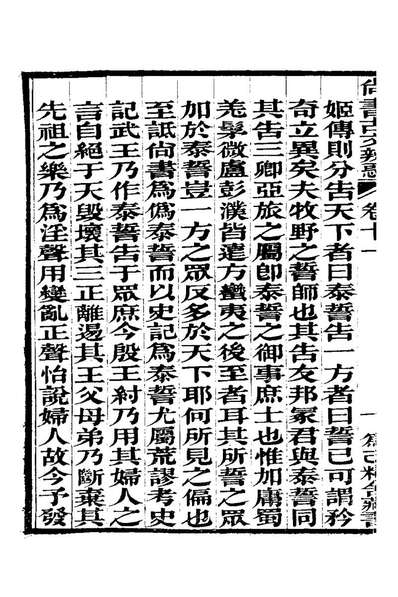 尙書古文辨惑 卷十一 一 爲己精舍藏書
姬傳則分告天下者曰泰誓告一方者曰誓已可謂矜
奇立異矣夫牧野之誓師也其告友邦冢君與泰誓同
其告三卿亞旅之屬卽泰誓之御事庶士也惟加庸蜀
羌髳微盧彭濮皆遠方蠻夷之後至者耳其所誓之眾
加於泰誓豈一方之眾反多於天下耶何所見之偏也
至詆尙書爲僞泰誓而以史記爲泰誓尤屬荒謬考史
記武王乃作泰誓告于眾庶今殷王紂乃用其婦人之
言自絕于天毀壞其三正離逷其王父母弟乃斷棄其
先祖之樂乃爲淫聲用變亂正聲怡說婦人故今予發